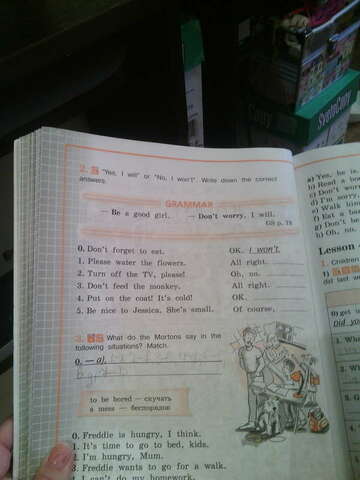 SvetoCopy
2. "Yes, I will" or "No, I won't". Write down the correct
answers.
GRAMMAR
— Be a good girl. — Don't worry, I will.
GB p. 78
0. Don't forget to eat. OK, I won't.
1. Please water the flowers. All right.
2. Turn off the TV, please! Oh, no.
3. Don't feed the monkey. All right.
4. Put on the coat! It's cold! OK.
5. Be nice to Jessica. She's small. Of course,
3. What do the Mortons say in the
following situations? Match.
0. — a),
to be bored — скучать
a mess — беспорядок
0. Freddie is hungry, I think.
1. It's time to go to bed, kids.
2. I'm hungry, Mum.
3. Freddie wants to go for a walk.
I can't do my homework.
a) Yes, he is.
b) Read a
c) Don't
d) I'm sorry,
e) Walk him
f) Eat a
g) Don't
h) Oh, no.
Lesson
1. Children
did last
0) get
Did
1. Wha
2. Wh
3.